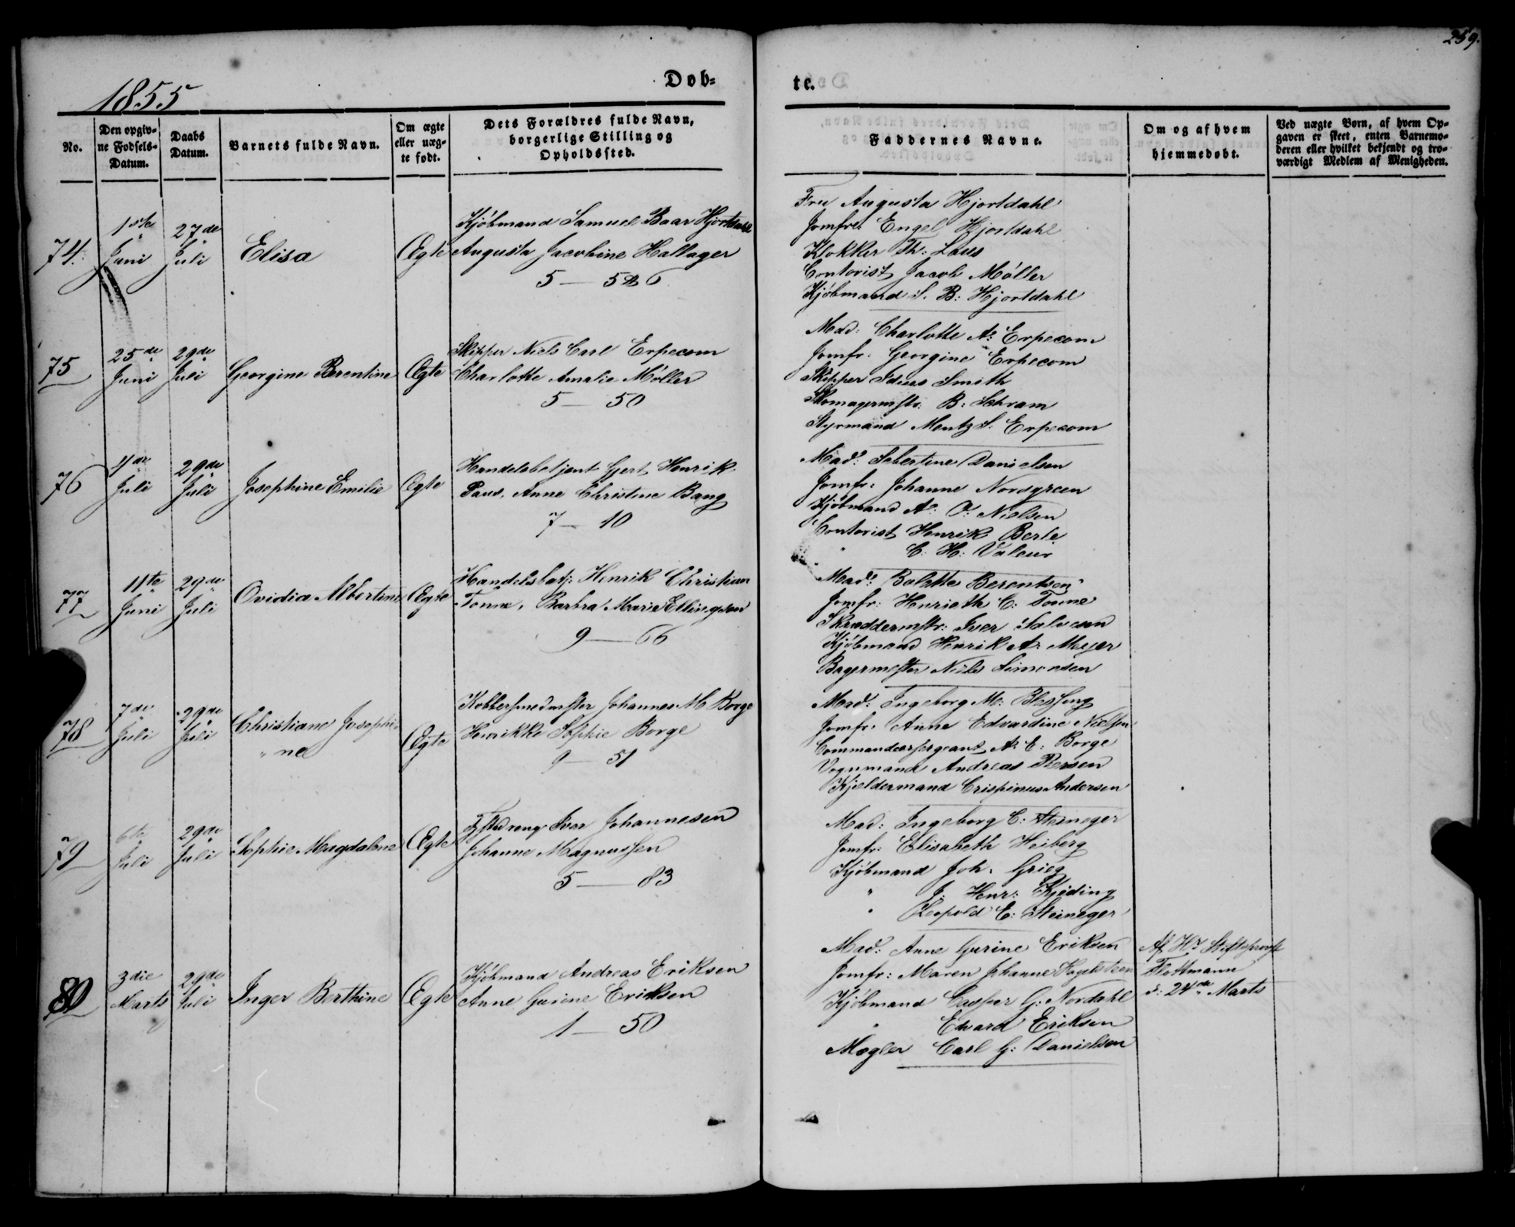 259.
1855
Døb-
te.
No.
Den opgiv-
ne Fødsels-
Datum.
Daabs
Datum.
Barnets fulde Navn.
Om ægte
eller uæg-
te født.
Dets Forældres fulde Navn,
borgerlige Stilling og
Opholdssted.
Faddernes Navne.
Om og af hvem
hjemmedøbt.
Ved uægte Børn, af hvem Op-
gaven er skeet, enten Barnemo-
deren eller hvilket bekjendt og tro-
værdigt Medlem af Menigheden.
74.
1ste
Juni
27de
Juli
Elisa
Ægte
Kjøbmand Samuel Baar Hjortdahl
Augusta Jacobine Hallager
5 — 526
Fru Augusta Hjortdahl
Jomfr. Engel Hjortdahl
Klokker Laus
Contorist Jacob Møller
Kjøbmand S. B: Hjortdahl
75
25de
Juni
29de
Juli
Georgine Berentine
Ægte
Skipper Niels Carl Erpecom
Charlotte Amalie Møller
5 — 50
Mad: Charlotte A: Erpecom
Jomfr. Georgine Erpecom
Skipper Smith
Skomagermstr. B: Schram
Styrmand Mentz S. Erpecom
76
4de
Juli
29de
Juli
Josephine Emilie
Ægte
Handelsbetjent Gert Henrik
Paus. Anne Christine Bang
7 — 10
Mad: Sebertine Danielsen
Jomfr: Johanne Nordgreen
Kjøbmand A: O: Nielsen
Contorist Henrik Berle
" C: H: Valeur
77
11te
Juni
29de
Juli
Ovidia Albertine
Ægte
Handelsbetj: Henrik Christian
Tonne, Barbra Marie Ellingsen
9 — 66
Mad: Bolette Berentsen
Jomfr: Henrieth C: Tonne
Skræddermstr: Iver Salvesen
Kjøbmand Henrik A: Meyer
Bagermester Niels Simonsen
78
7de
Juli
29de
Juli
Christiane Josephi-
" ne
Ægte
Kobbersmedmester Johannes M Borge
Henrikke Sophie Borge
9 — 51
Mad: Ingeborg M: Blessing
Jomfr: Anne Edvardine Nielsen
Commandeersergeant A: E: Borge
Vognmand Andreas Persen
Kjeldermand Crispinus Andersen
79
6te
Juli
29de
Juli
Sophie Magdalene
Ægte
Iver Johannesen
Johanne Magnussen
5 — 83
Mad: Ingeborg C: Steineger
Jomfr: Elisabeth Heiberg
Kjøbmand Joh. Grieg
" J. Henr: Kjeding
" Leopold C: Steineger
80
3die
Marts
29de
Juli
Inger Berthine
Ægte
Kjøbmand Andreas Eriksen
Anne Gurine Eriksen
1 — 50
Mad: Anne Gurine Eriksen
Jomfr: Maren Johanne Hagelsteen
Kjøbmand Casper G: Nordahl
" Edvard Eriksen
Mægler Carl G: Danielsen
Af Hr Stiftsprovst
Thottmann
d: 24de Marts